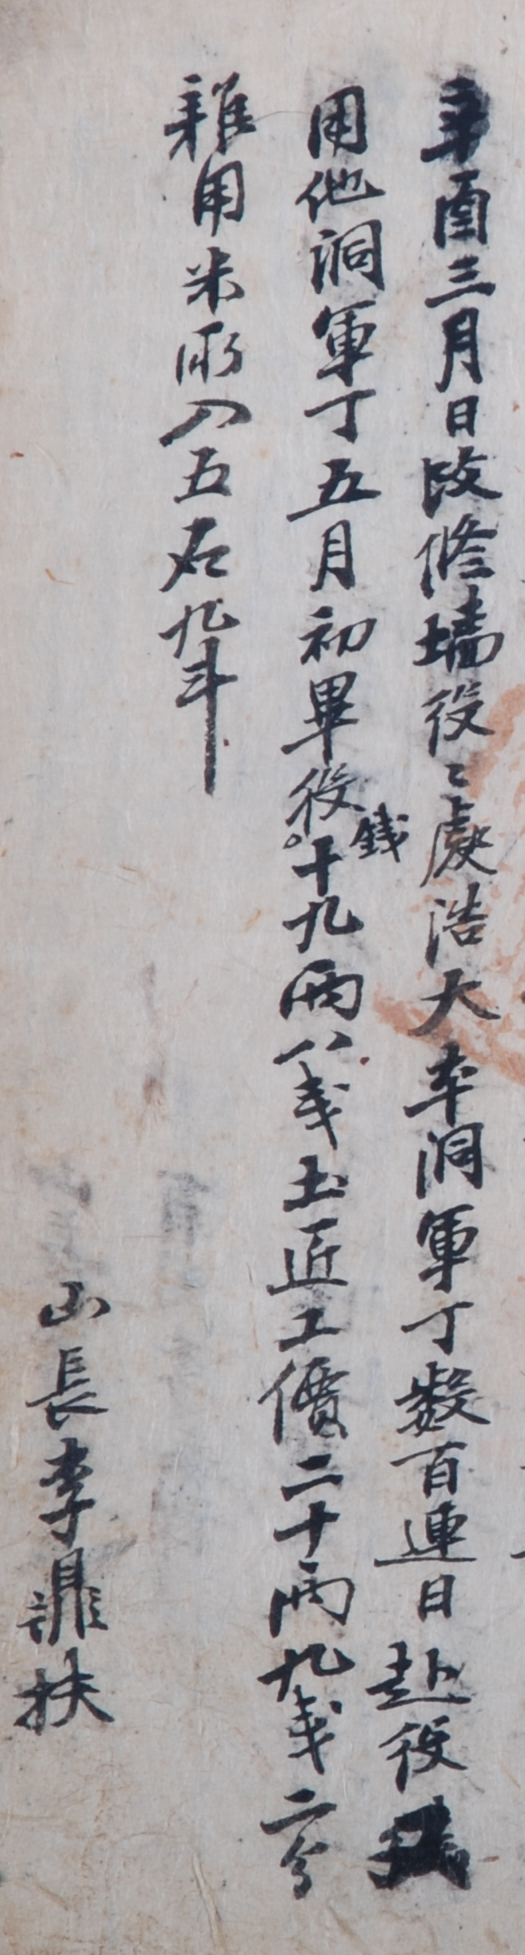 辛酉三月日改修墻役〻處浩大本洞軍丁數百連日赴役
用他洞軍丁五月初畢役錢十九兩八戔土匠工價二十兩九戔二分
雜用米所入五石九斗
山長李鼎扶